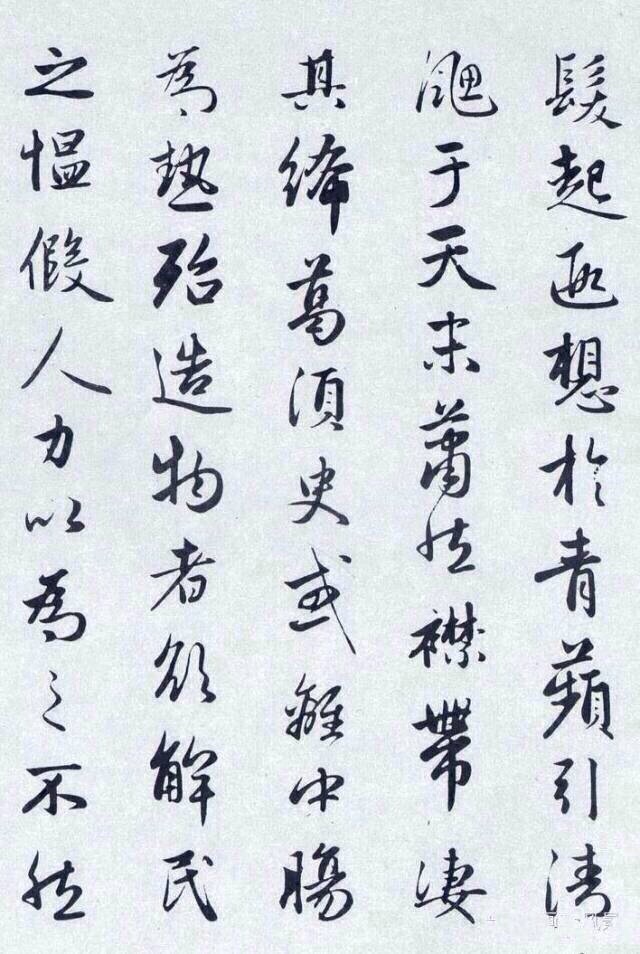 髮起遐想於青蘋引清
颸于天末蕭然襟帶凄
其絺葛須臾或離中腸
為熱殆造物者欲解民
之慍假人力以為之不然